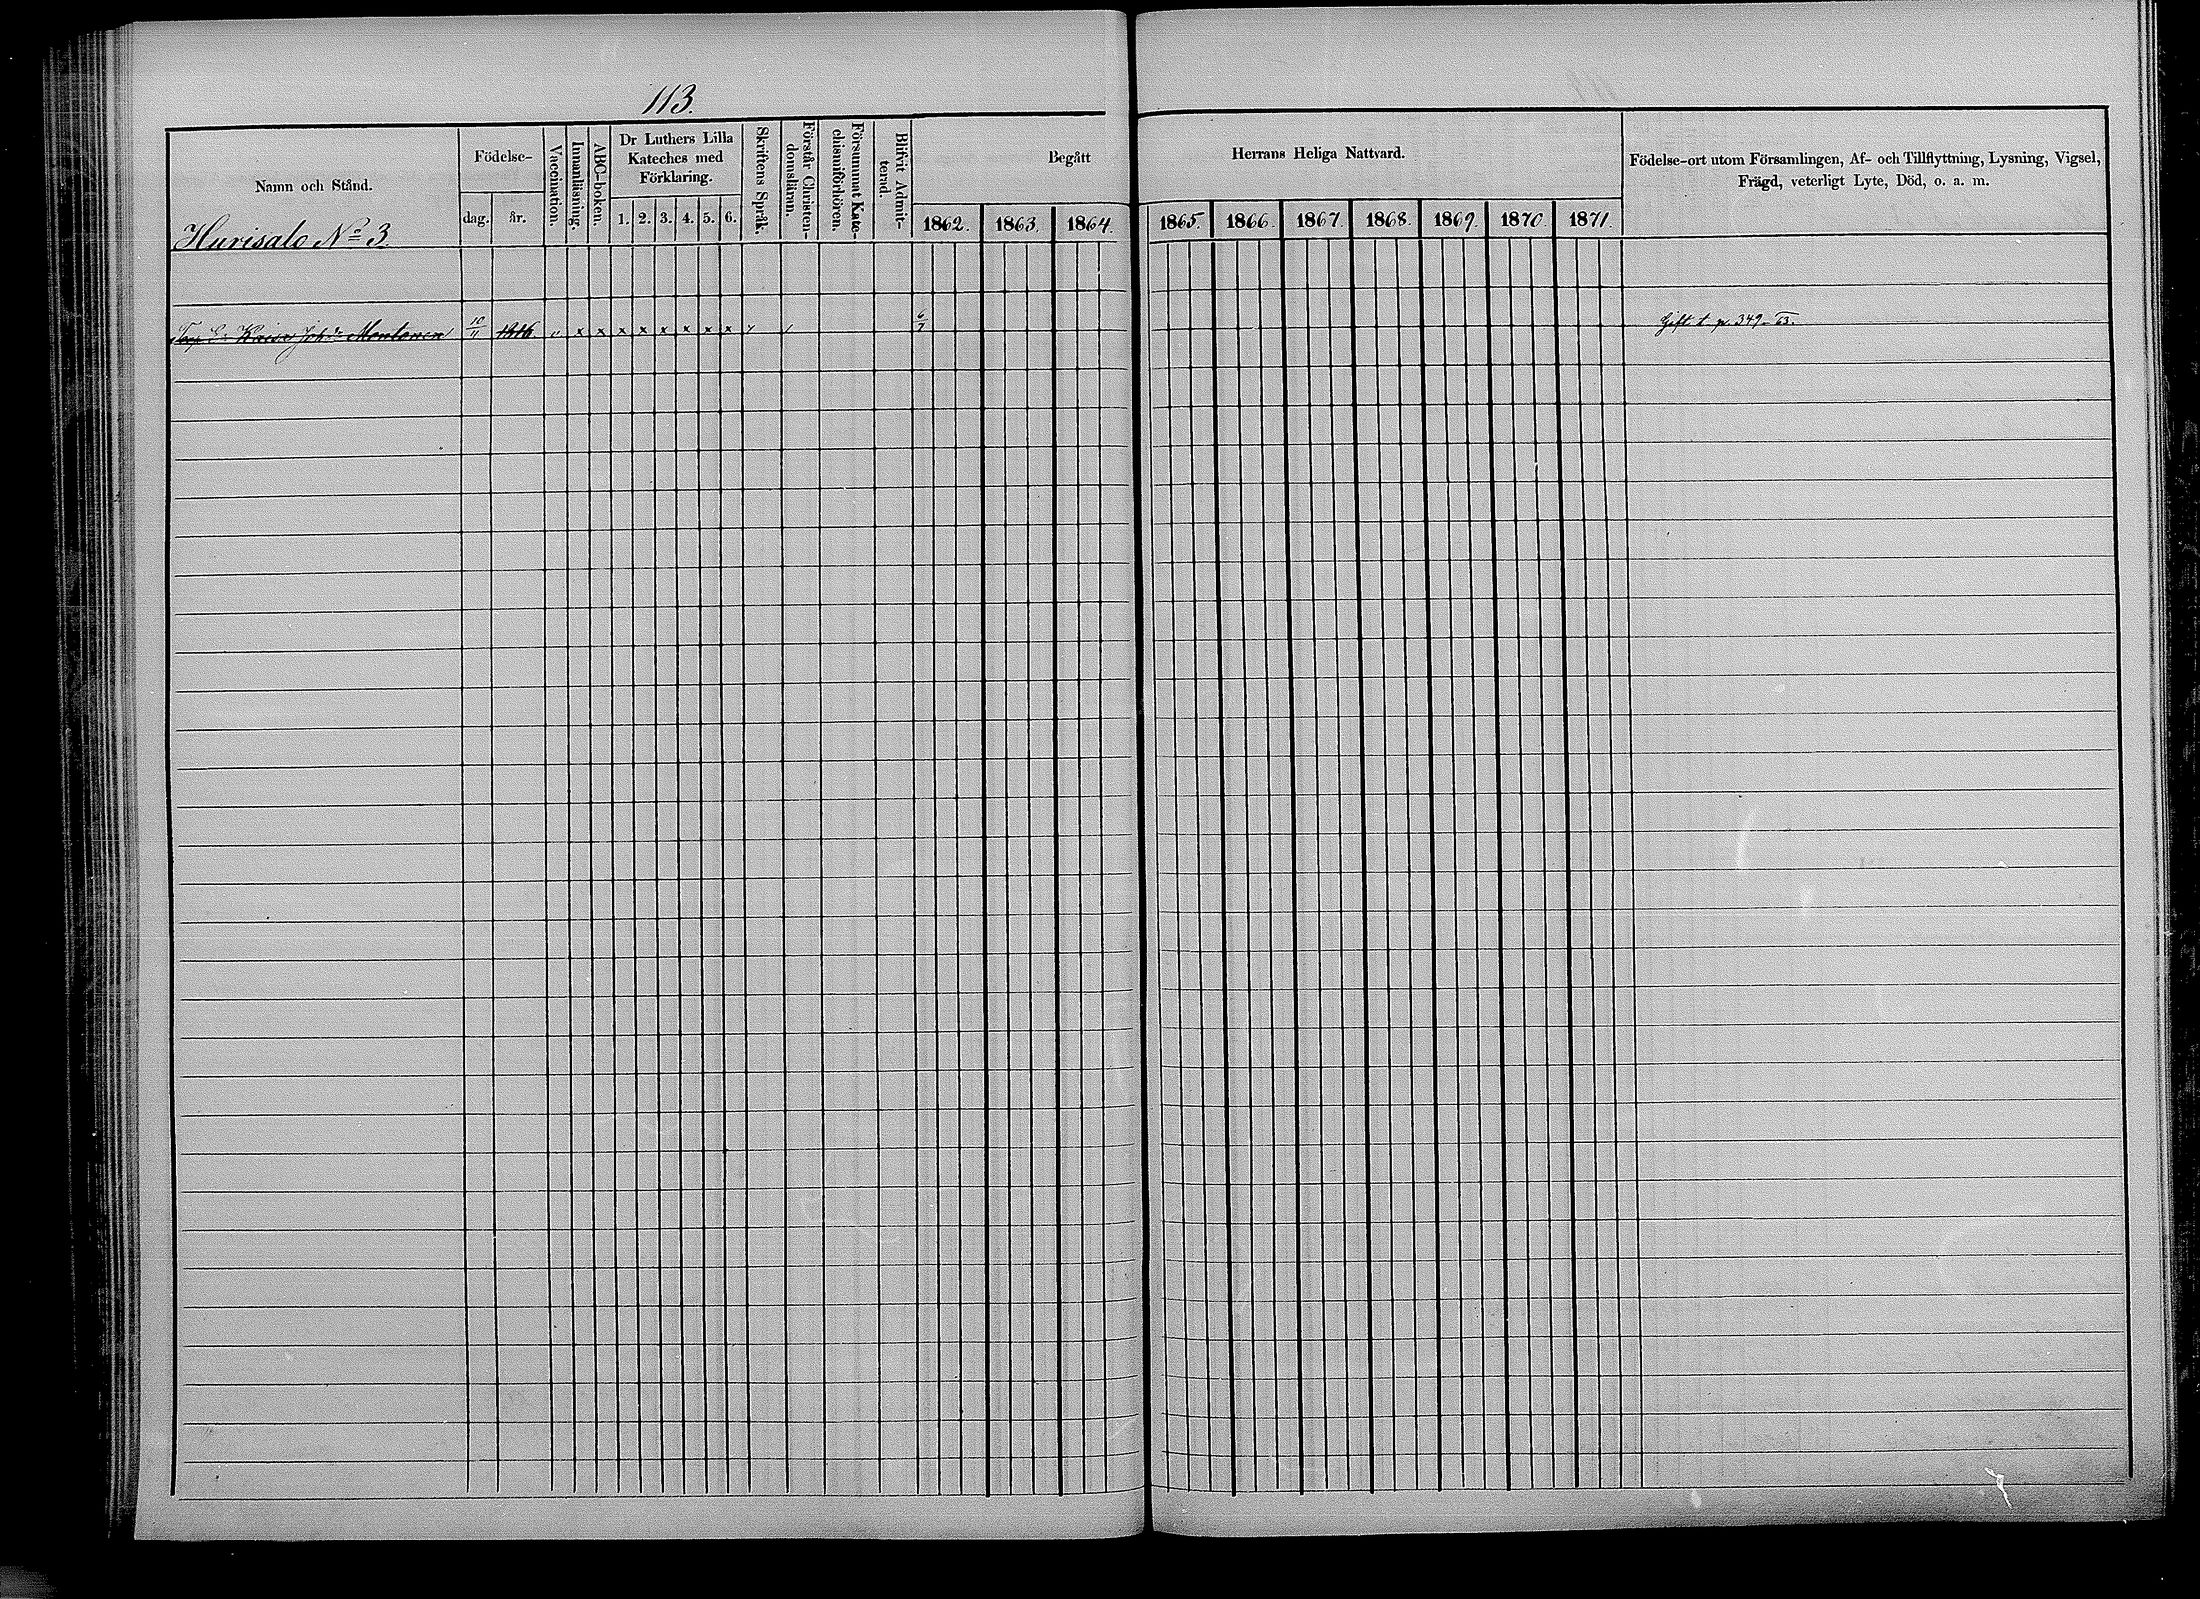 113.
Namn och Stånd.
Hurisalo No 3
Födelse-
dag. år.
Vaccination.
Innanläsning.
ABC-boken.
Dr Luthers Lilla
Kateches med
Förklaring.
1. 2. 3. 4. 5. 6.
Skriftens Språk.
Förstår Christen-
domsläran.
Försummat Kate-
chismiförhören.
Blifvit Admit-
terad.
Begått
1862. 1863. 1864.
Herrans Heliga Nattvard.
1865. 1866. 1867. 1868. 1869. 1870. 1871.
Födelse-ort utom Församlingen, Af- och Tillflyttning, Lysning, Vigsel,
Frägd, veterligt Lyte, Död, o. a. m.
Kaisa Joh:n Montonen 10/11 x x x x x x x x 6/7 Gift t. p. 349 - 63.